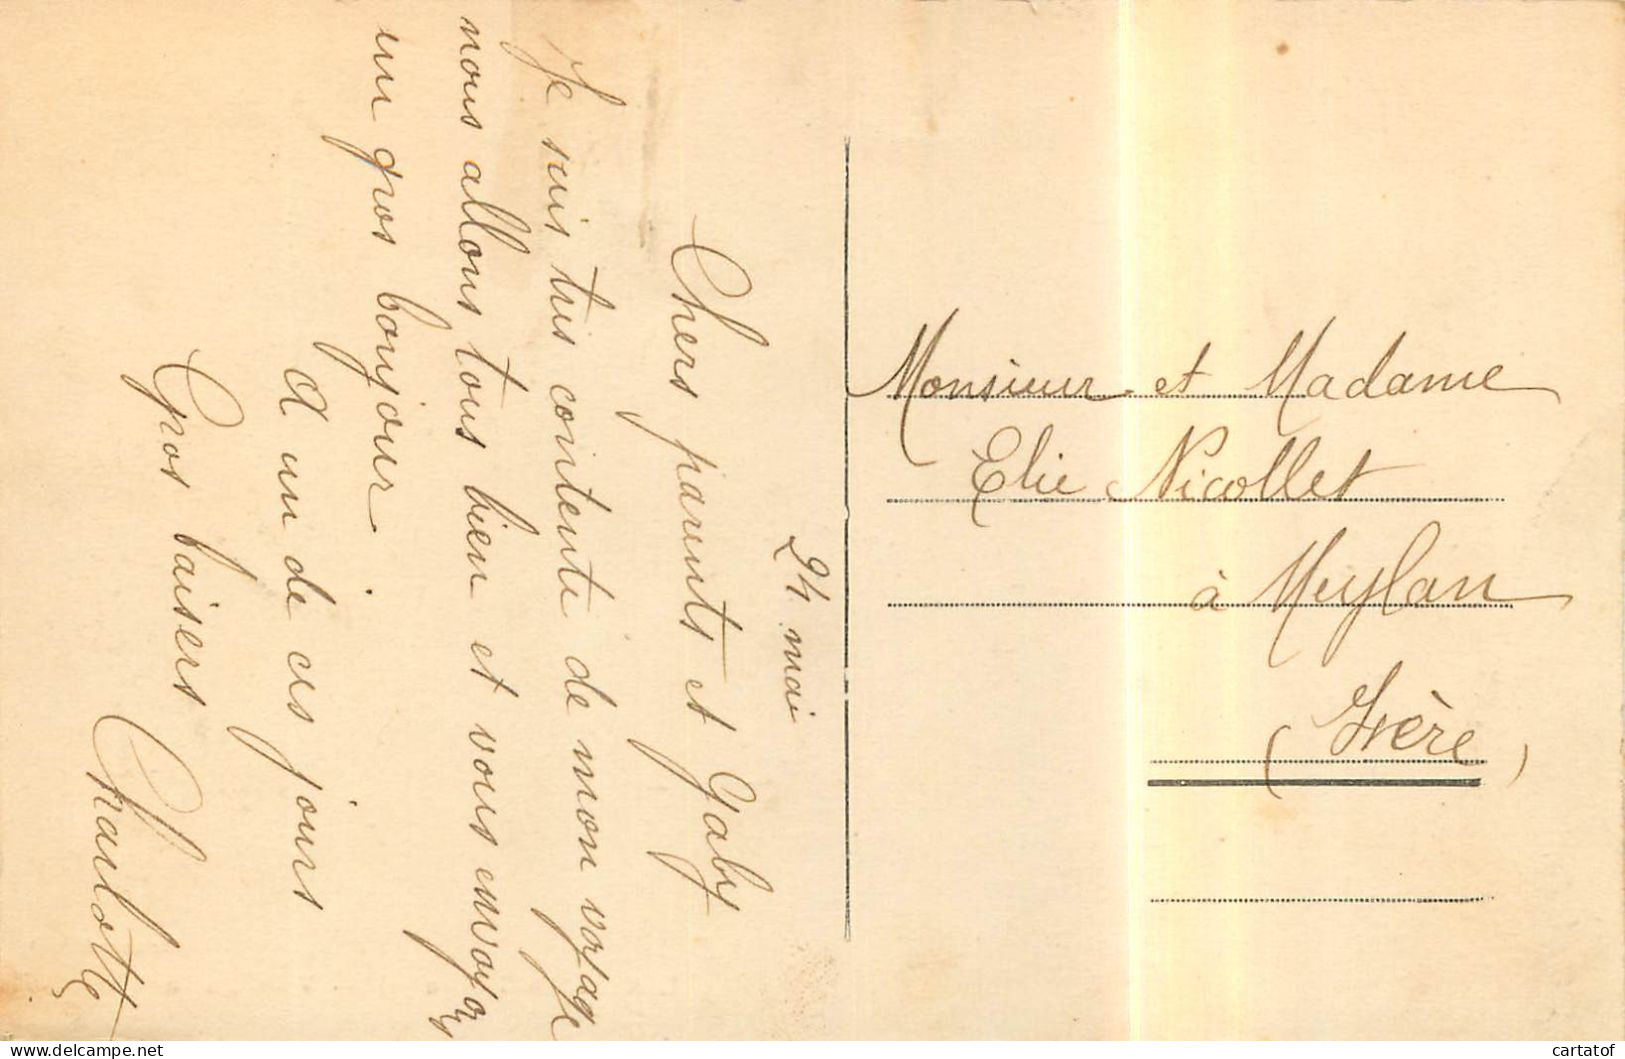 24 mai
Chers parents et Gaby
Je suis très contente de mon voyage
nous allons tous bien et vous envoyons
un gros bonjour.
A un de ces jours
Gros baisers
Charlotte
Monsieur et Madame
Elie Nicollet
à Meylan
(Isère)
cartatof